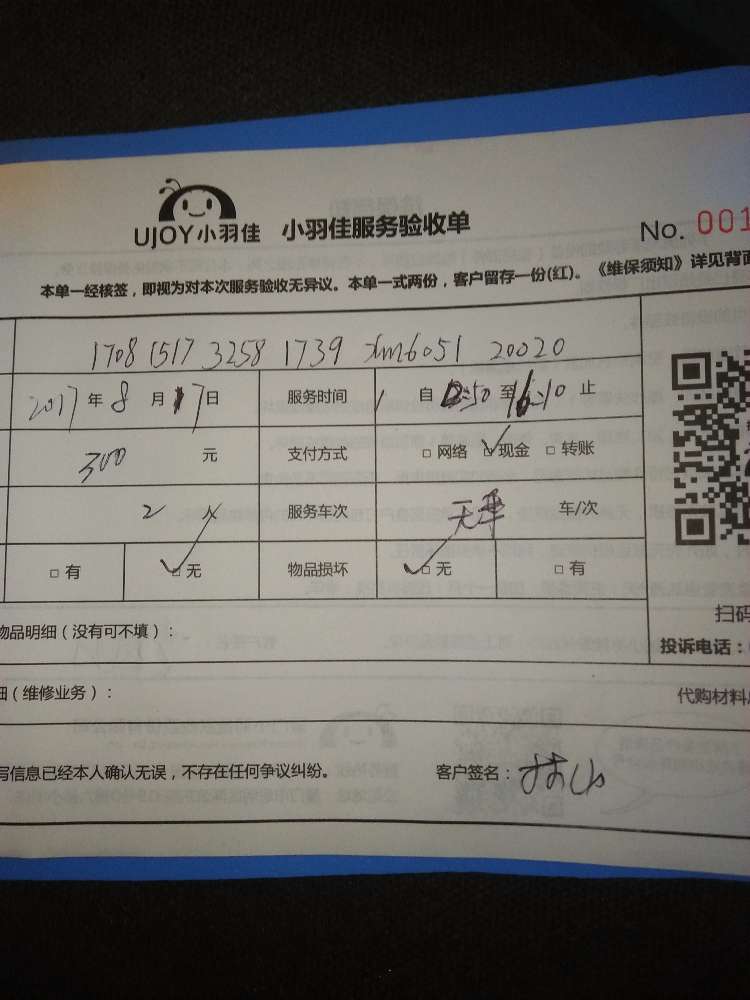 UJOY小羽佳 小羽佳服务验收单
No. 001
本单一经核签，即视为对本次服务验收无异议。本单一式两份，客户留存一份(红)。《维保须知》详见背面
1708 1517 3258 1739 xm6051 20020
2017 年 8 月 17 日 服务时间 自 :50 至 16:10 止
300 元 支付方式 □ 网络 □ 现金 □ 转账
2 人 服务车次 车/次
□ 有 □ 无 物品损坏 □ 无 □ 有
物品明细（没有可不填）：
扫码
投诉电话：
细（维修业务）：
代购材料
写信息已经本人确认无误，不存在任何争议纠纷。 客户签名：